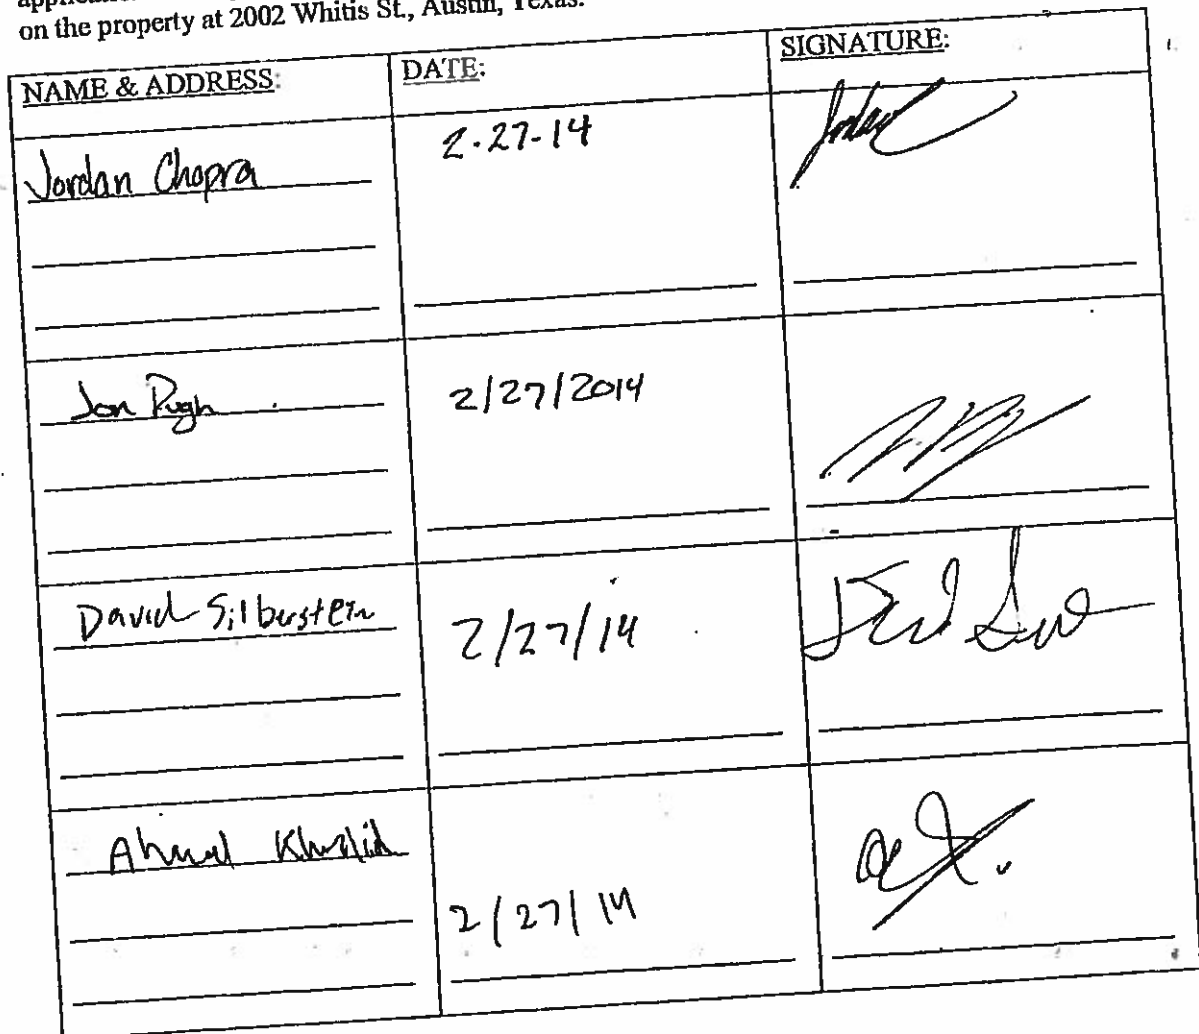 on the property at 2002 Whitis St., Austin, Texas.
NAME & ADDRESS: DATE: SIGNATURE:
Jordan Chopra 2-27-14 Jordan
Jon Pugh 2/27/2014
David Silberstein 2/27/14
Ahmad Khalid 2/27/14